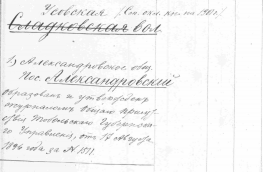 Усовская (См. окл. кн. на 1901 г.
Сладковская вол.
1) Александровское общ.
Пос. Александровский
образован и утвержден
журналом Общаго Присут-
ствия Тобольского Губернска-
го Управления, от 17 Августа
1896 года за № 1571.